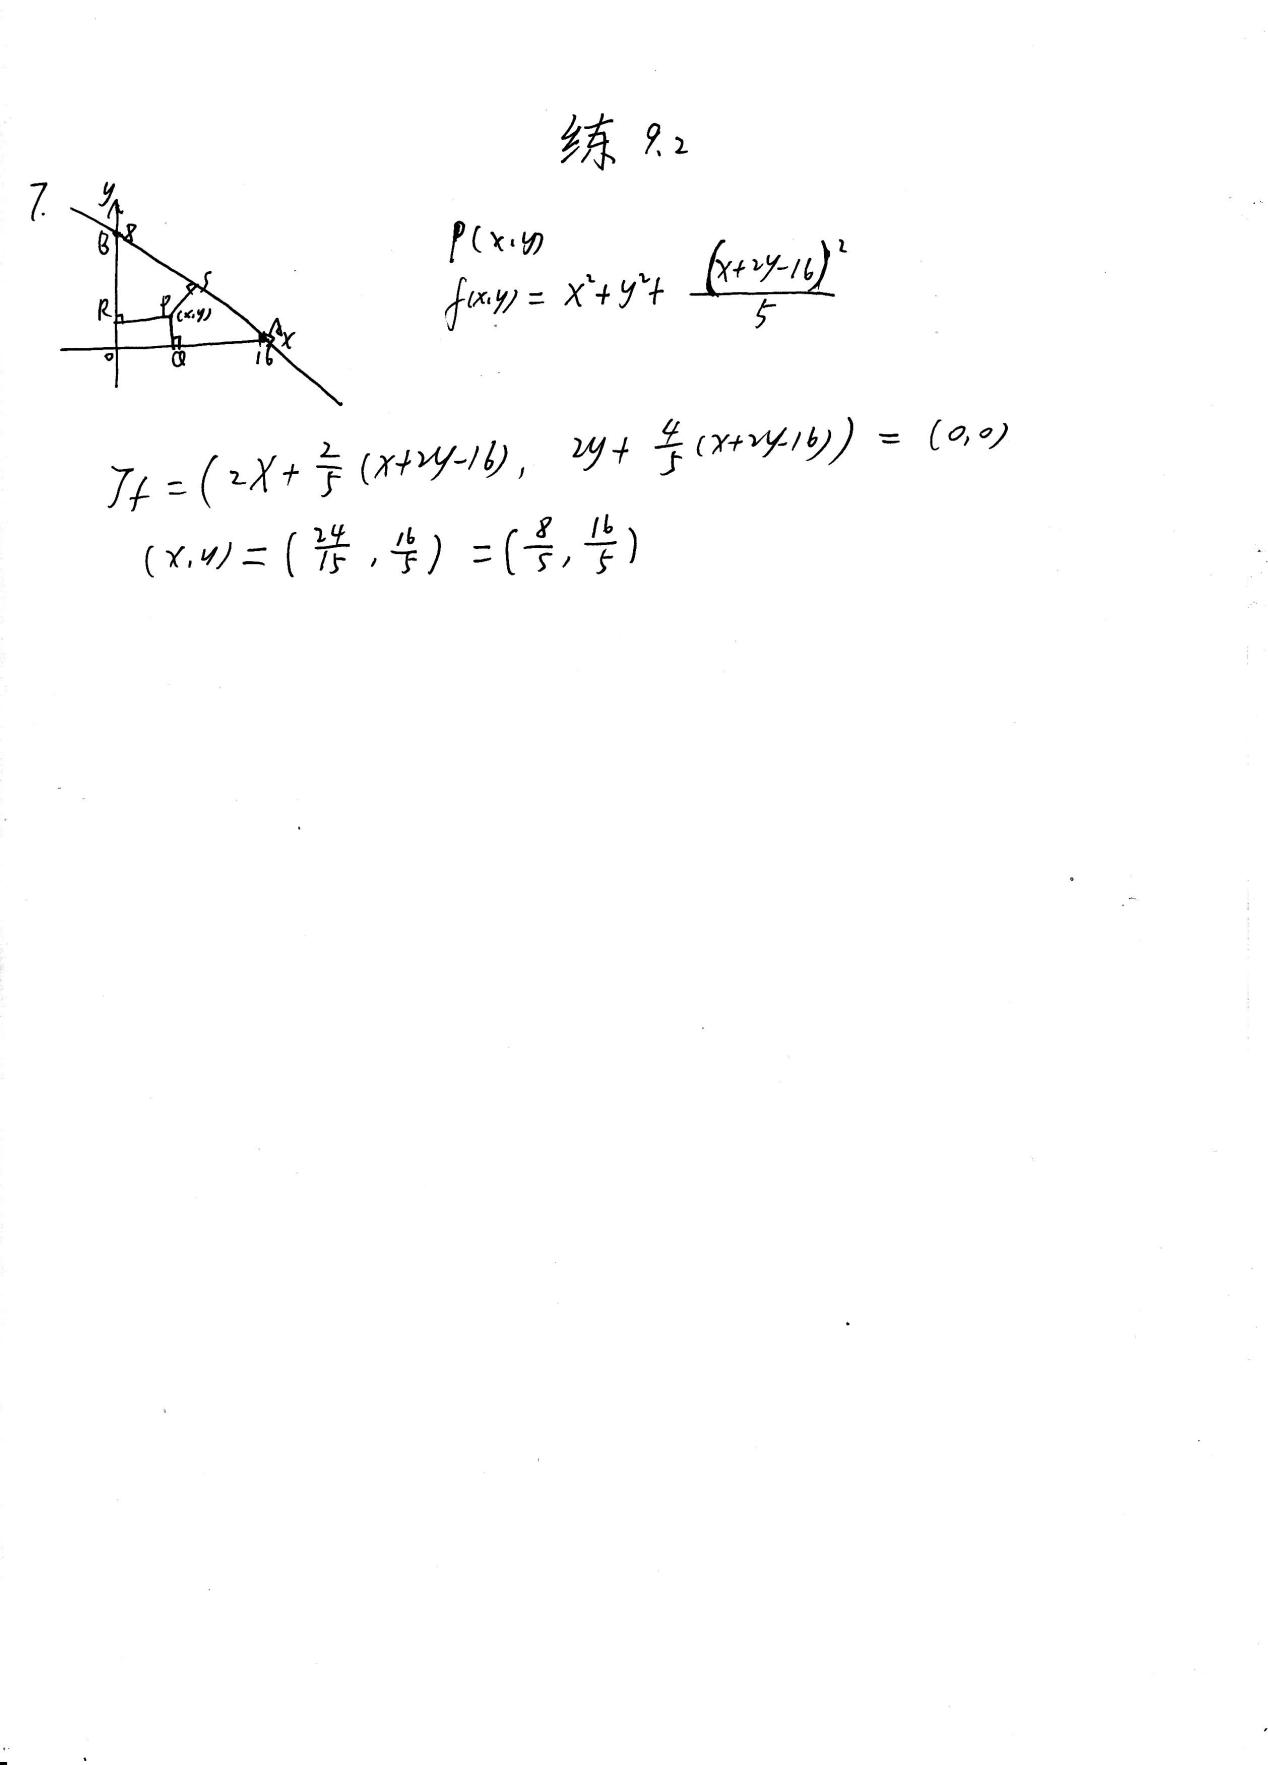 练 9.2
7.
y
B 8
S
R P (x,y)
A x
O Q 16
P(x,y)
f(x,y) = x²+y²+ (x+2y-16)²/5
Jf = (2x+ 2/5 (x+2y-16), 2y+ 4/5 (x+2y-16)) = (0,0)
(x,y) = (24/15, 16/5) = (8/5, 16/5)